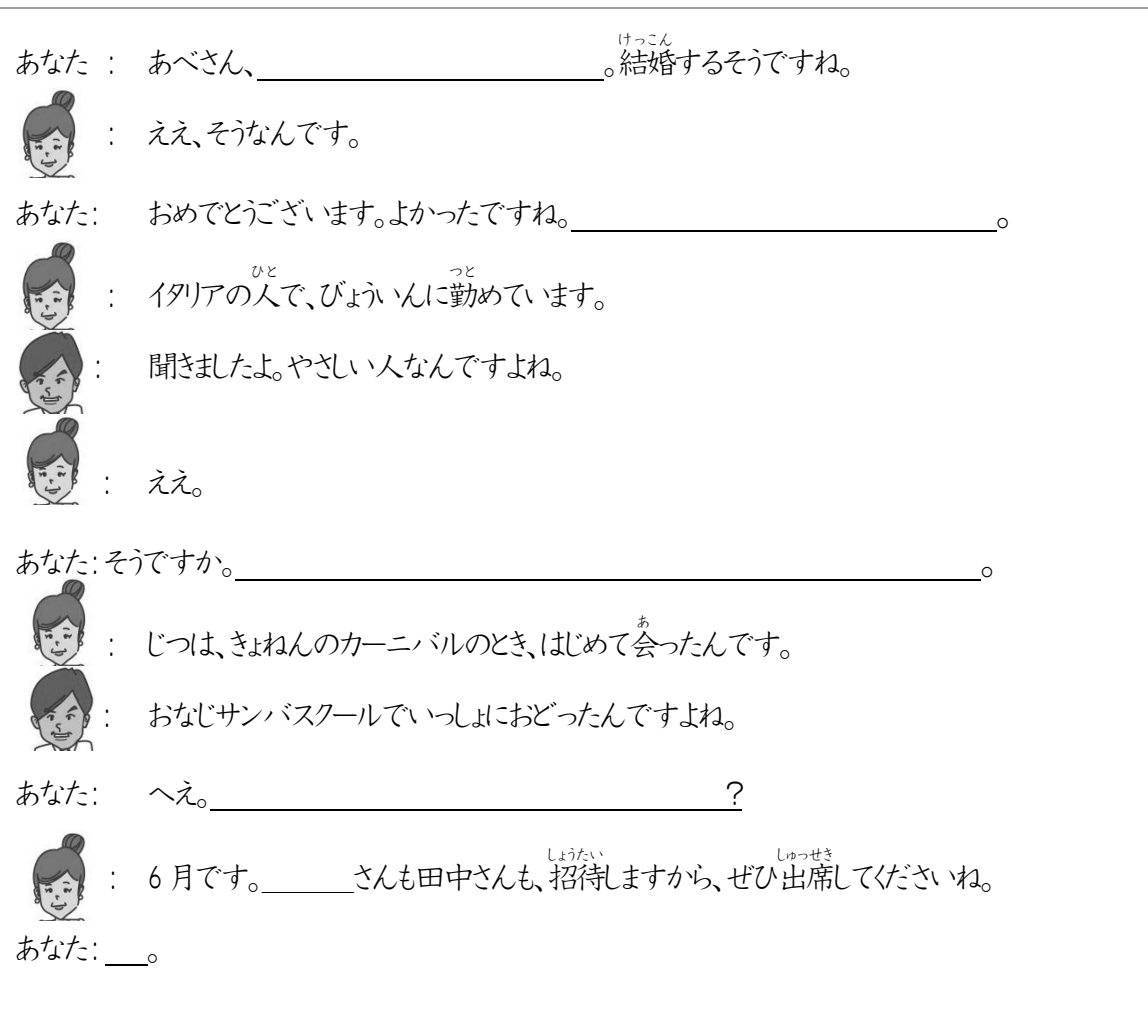 けっこん
あなた : あべさん、____________________。結婚するそうですね。
: ええ、そうなんです。
あなた: おめでとうございます。よかったですね。________________________。
ひと つと
: イタリアの人で、びょういんに勤めています。
: 聞きましたよ。やさしい人なんですよね。
: ええ。
あなた: そうですか。__________________________________________。
あ
: じつは、きょねんのカーニバルのとき、はじめて会ったんです。
: おなじサンバスクールでいっしょにおどったんですよね。
あなた: へえ。______________________________?
しょうたい しゅっせき
: 6月です。_____さんも田中さんも、招待しますから、ぜひ出席してくださいね。
あなた: ___。